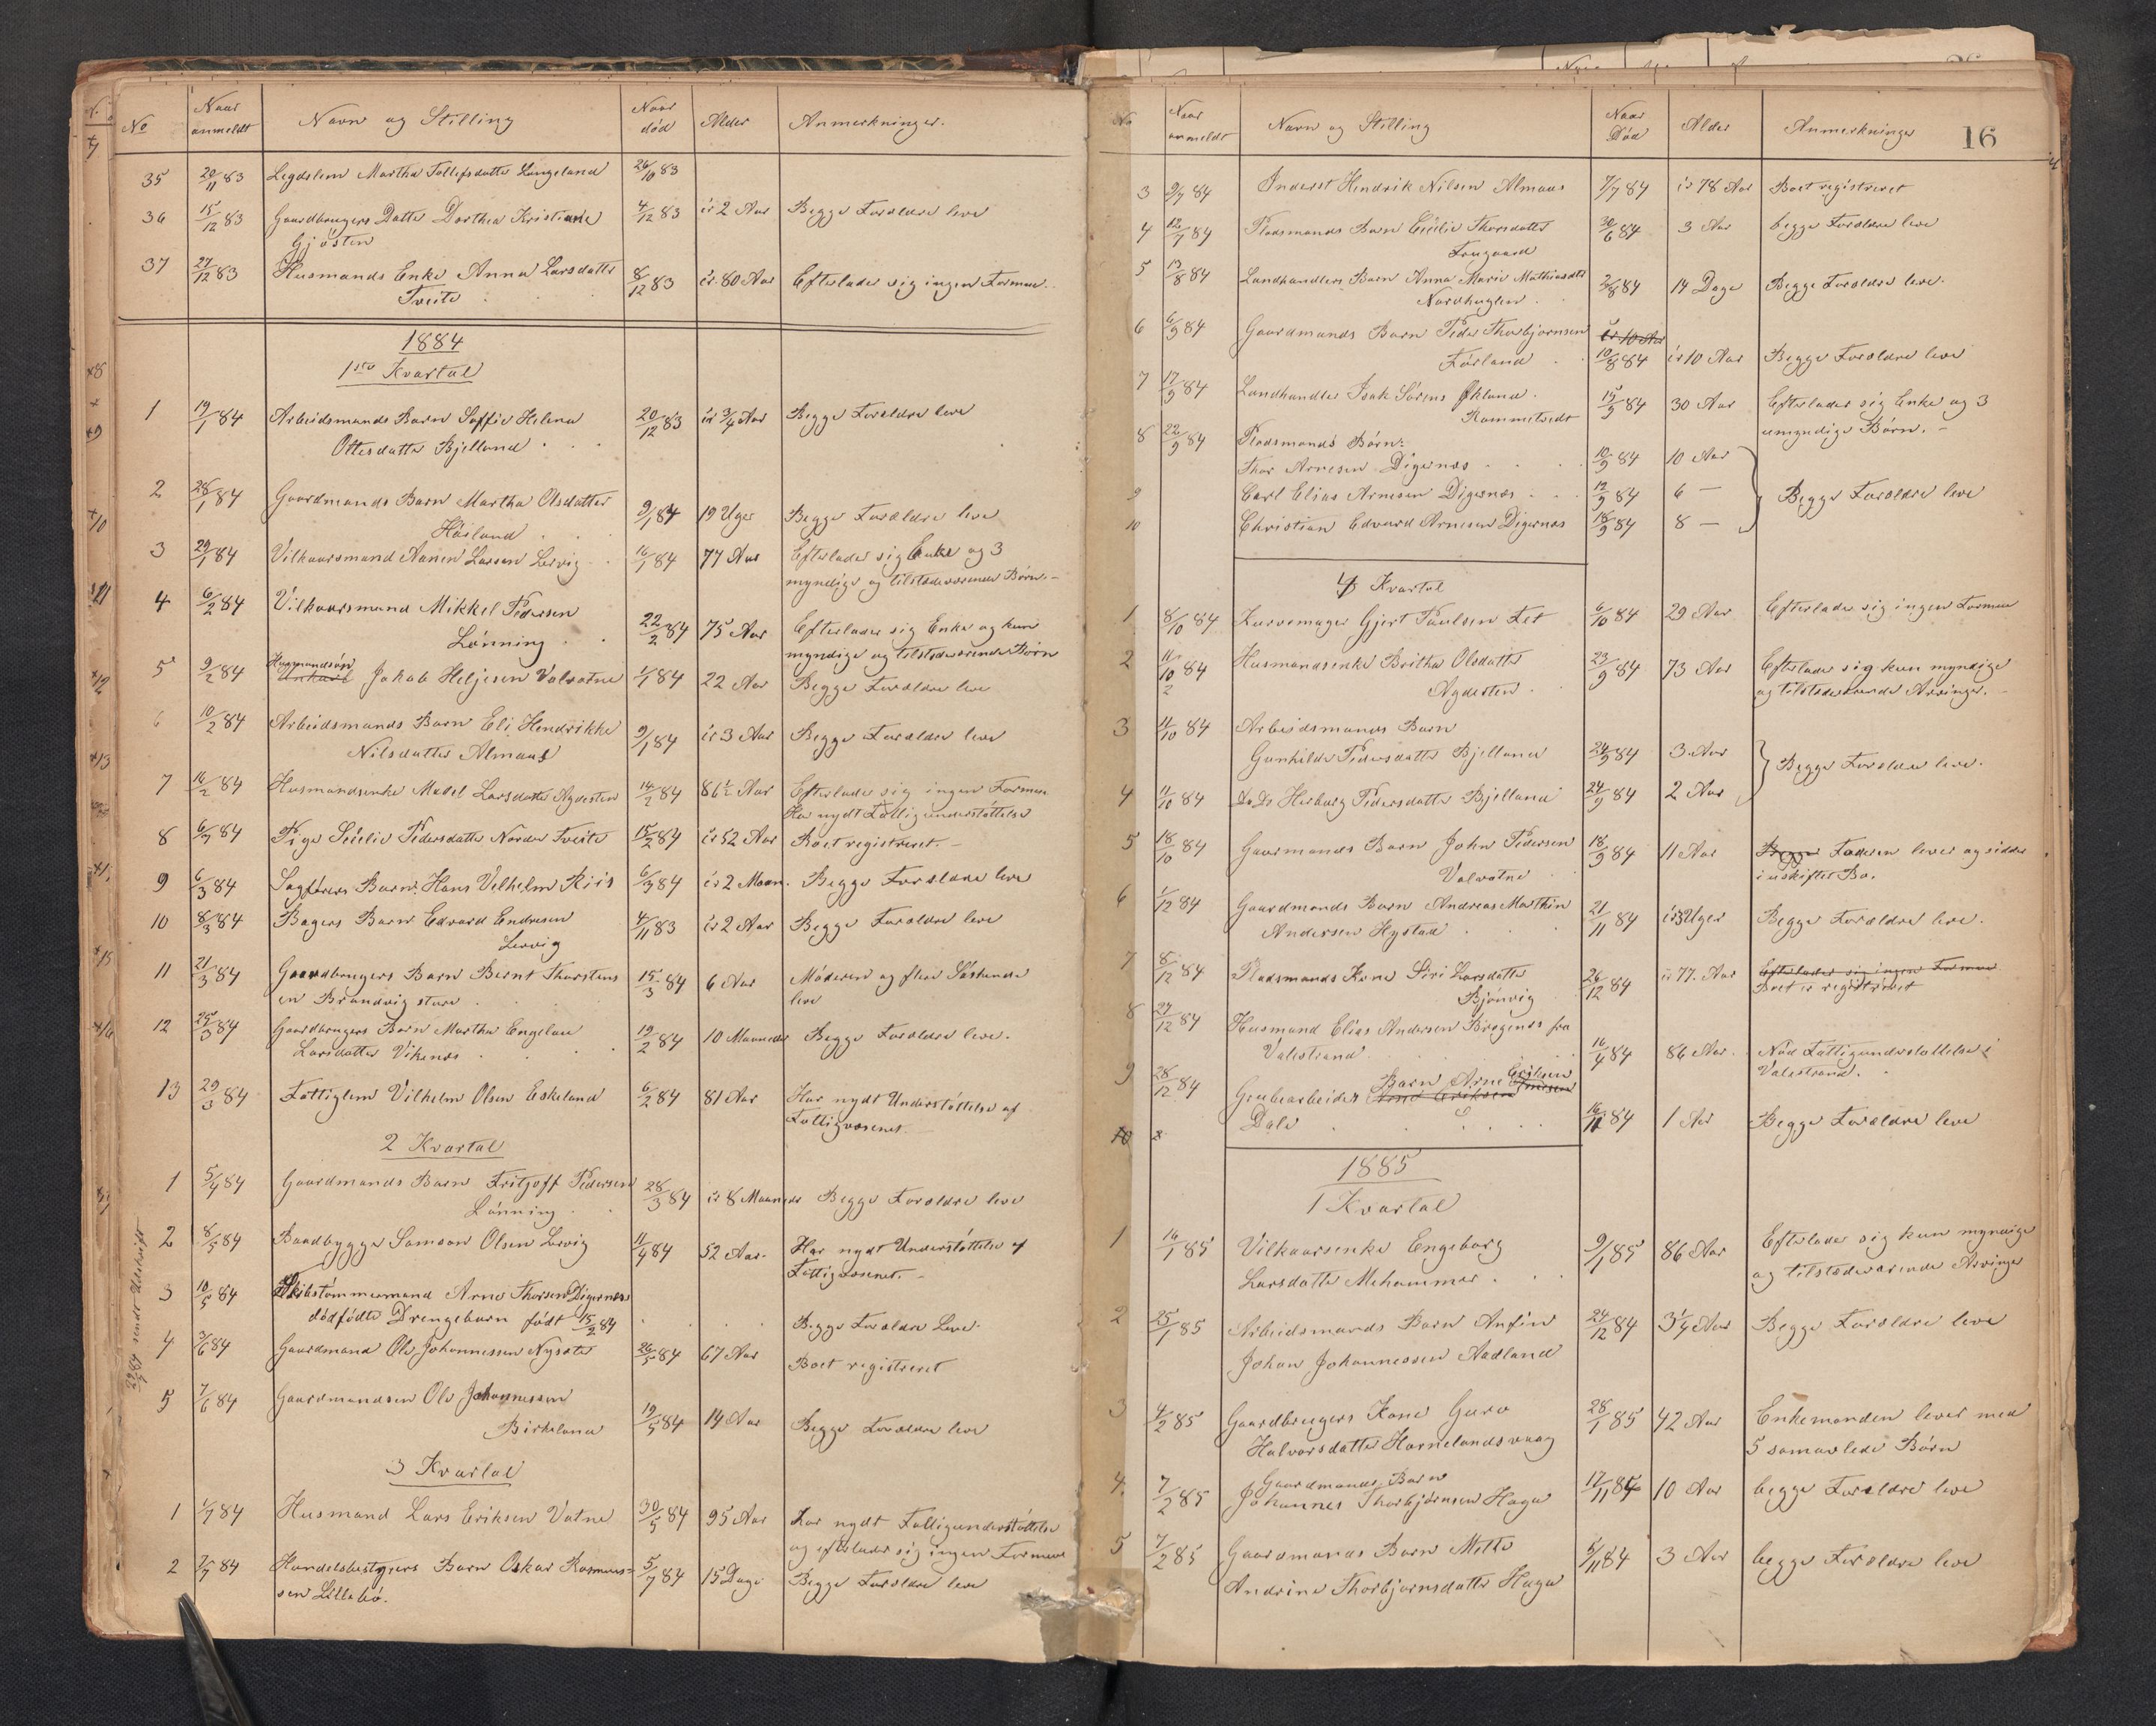 No Naar anmeldt Navn og Stilling Naar død Alder Anmerkninger.
35 20/11 83 Legdslem Martha Tollefsdatter Langeland 26/10 83
36 15/12 83 Gaardbrugers Datter Dorthea Kristiane 4/12 83 ir 2 Aar Begge Forældre leve
Gjøsten
37 27/12 83 Husmands Enke Anna Larsdatter 8/12 83 ir. 80 Aar Efterlader sig ingen Formue.
Tveite
1884
1ste Kvartal
1 19/1 84 Arbeidsmands Barn Soffie Helena 20/12 83 ir 3/4 Aar Begge Forældre leve
Ottesdatter Bjelland
2 28/1 84 Gaardmands Barn Martha Olsdatter 9/1 84 19 Uger Begge Forældre leve
Høiland
3 29/1 84 Vilkaarsmand Aanen Larsen Lervig 16/1 84 77 Aar Efterlader sig Enke og 3
myndige og tilstedeværende Børn.-
4 6/2 84 Vilkaarsmand Mikkel Pedersen 22/2 84 75 Aar Efterlader sig Enke og kun
Lønning myndige og tilstedeværende Børn
5 9/2 84 Husmandssøn Ungkarl Jakob Heljesen Valvatne 1/1 84 22 Aar Begge Forældre leve
6 10/2 84 Arbeidsmands Barn Eli Hendrikke 9/1 84 ir 3 Aar Begge Forældre leve
Nilsdatter Almaas
7 16/2 84 Husmandsenke Madel Larsdatter Agdesten 14/2 84 86 1/2 Aar Efterlader sig ingen Formue
Har nydt Fattigunderstøttelse
8 6/3 84 Pige Sicelie Pedersdatter Nordre Tveite 15/2 84 ir 52 Aar Boet registreret.-
9 6/3 84 Sagførers Barn: Hans Vilhelm Riis 6/3 84 ir 2 Maan. Begge Forældre leve
10 8/3 84 Bagers Barn Edvard Endresen 4/11 83 ir 2 Aar Begge Forældre leve
Lervig
11 21/3 84 Gaardbrugers Barn Bernt Thorstens 15/3 84 6 Aar Moderen og flere Søskende
en Brandvig store leve
12 25/3 84 Gaardbrugers Barn Martha Engeline 19/2 84 10 Maaneder Begge Forældre leve.
Larsdatter Vikenes
13 29/3 84 Fattiglem Vilhelm Olsen Eskeland 6/2 84 81 Aar Har nydt Understøttelse af
Fattigvæsenet.
2 Kvartal
1 5/4 84 Gaardmands Barn Fritjoff Pedersen 28/3 84 ir 8 Maaneder Begge Forældre leve
Lønning
2 8/5 84 Baadbygger Samson Olsen Lervig 11/4 84 52 Aar. Har nydt Understøttelse af
Fattigvæsenet.-
3 10/5 84 Skibstømmermand Arne Thorsen Digernæs
dødfødte Drengebarn født 15/2 84 Begge Forældre Leve.
4 3/6 84 Gaardmand Ole Johannessen Nysæter 26/5 84 67 Aar Boet registreret
5 7/6 84 Gaardmandsøn Ole Johannessen
Birkeland 19/5 84 14 Aar Begge Forældre leve
29/7 84 sendt Udskrift
3 Kvartal
1 1/7 84 Husmand Lars Eriksen Vatne 30/5 84 95 Aar Har nydt Fattigunderstøttelse
og efterlader sig ingen Formue
2 7/7 84 Handelsbestyrers Barn Oskar Rasmus- 5/7 84 15 Dage Begge Forældre leve
sen Lillebø.
No Naar anmeldt Navn og Stilling Naar Død Alder Anmerkninger 16
3 9/7 84 Inderst Hendrik Nilsen Almaas 7/7 84 ir 78 Aar Boet registreret
4 12/7 84 Pladsmands Barn Cicilie Thorsdatter 30/6 84 3 Aar begge Forældre leve
Frugaard
5 13/8 84 Landhandlers Barn Anna Marie Mathiasdtr 2/8 84 14 Dage Begge Forældre leve.
Nordhuglen
6 6/9 84 Gaardmands Barn Peder Thorbjørnsen ir 10 Aar
Førland 10/8 84 ir 10 Aar Begge Forældre leve
7 17/9 84 Landhandler Isak Sørens Økland. 15/9 84 30 Aar Efterlader sig Enke og 3
Rommetvedt umyndige Børn.-
8 22/9 84 Pladsmands Børn:
Thor Arnesen Digernæs 10/9 84 10 Aar
9 Carl Elias Arnesen Digernæs 12/9 84 6 — Begge Forældre leve
10 Christian Edvard Arnesen Digernæs 18/9 84 8 —
4 Kvartal
1 8/10 84 Kurvemager Gjert Paulsen Fet 6/10 84 29 Aar Efterlader sig ingen Formue
2 11/10 84 Husmandsenke Britha Olsdatter 23/9 84 73 Aar Efterlader sig kun myndige
Agdesten og tilstedeværende Arvinger.-
3 11/10 84 Arbeidsmands Barn
Gunhilde Pedersdatter Bjelland 24/9 84 3 Aar Begge Forældre leve.
4 11/10 84 Do Do Herborg Pedersdatter Bjelland 24/9 84 2 Aar
5 18/10 84 Gaarmands Barn John Pedersen 18/9 84 11 Aar Begge Faderen lever og sidder
Valvatne i uskiftet Bo.
6 1/12 84 Gaardmands Barn Andreas Mathin 21/11 84 ir 3 Uger Begge Forældre leve.
Andersen Hystad
7 8/12 84 Pladsmands Kone Siri Larsdatter 26/12 84 ir 77. Aar Efterlader sig ingen Formue
Bjønvig Boet er registreret
8 27/12 84 Husmand Elias Andersen Brogenes fra
Valestrand 16/4 84 86 Aar. Nød Fattigunderstøttelse i
Valestrand.
9 28/12 84 Grubearbeider Arne Eriksen Barn Arne Eriksen
Dale 16/11 84 1 Aar Begge Forældre leve
10
1885
1 Kvartal
1 16/1 85 Vilkaarsenke Engeborg 9/1 85 86 Aar Efterlader sig kun myndige
Larsdatter Mehammer og tilstedeværende Arvinger
2 25/1 85 Arbeidsmands Barn Anfin 24/12 84 3 1/4 Aar Begge Forældre leve
Johan Johannessen Aadland
3 4/2 85 Gaardbrugers Kone Guro 28/1 85 42 Aar Enkemanden lever med
Halvorsdatter Hornelandsvaag 5 samavlede Børn
Gaardmands Barn
4. 7/2 85 Johannes Thorbjørnsen Haga 17/11 84 10 Aar begge Forældre leve
5 7/2 85 Gaardmands Barn Mette 5/11 84 3 Aar begge Forældre leve
Andrine Thorbjørnsdatter Haga